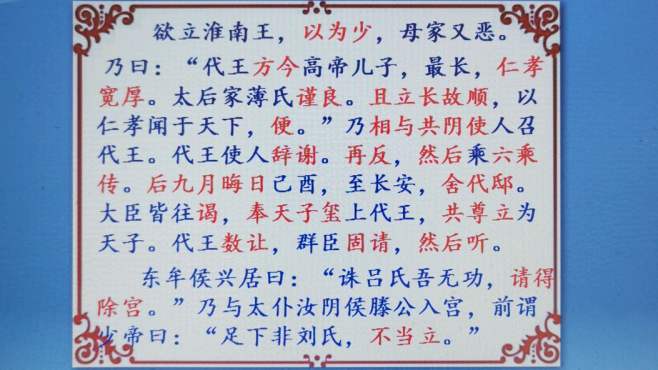 欲立淮南王，以为少，母家又恶。
乃曰：“代王方今高帝儿子，最长，仁孝
宽厚。太后家薄氏谨良。且立长故顺，以
仁孝闻于天下，便。”乃相与共阴使人召
代王。代王使人辞谢。再反，然后乘六乘
传。后九月晦日己酉，至长安，舍代邸。
大臣皆往谒，奉天子玺上代王，共尊立为
天子。代王数让，群臣固请，然后听。
东牟侯兴居曰：“诛吕氏吾无功，请得
除宫。”乃与太仆汝阴侯滕公入宫，前谓
少帝曰：“足下非刘氏，不当立。”